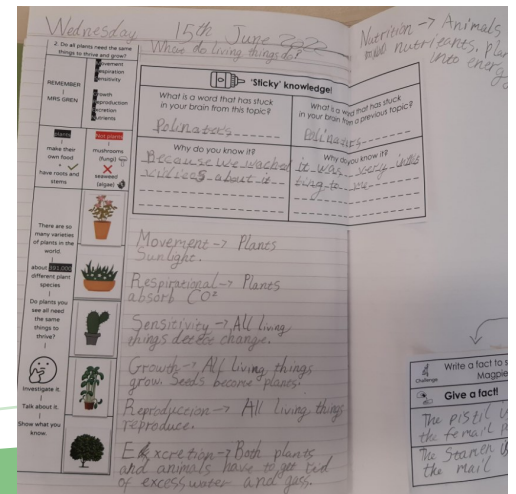 Wednesday 15th June
Where do living things do?
2. Do all plants need the same
things to thrive and grow?
REMEMBER
MRS GREN
Movement
Respiration
Sensitivity
Growth
Reproduction
Excretion
Nutrients
plants
make their
own food
+
have roots and
stems
Not plants
mushrooms
(fungi)
seaweed
(algae)
There are so
many varieties
of plants in the
world.
about 391,000
different plant
species
Do plants you
see all need
the same
things to
thrive?
Investigate it.
Talk about it.
Show what you
know.
'Sticky' knowledge!
What is a word that has stuck
in your brain from this topic?
Polinaters
Why do you know it?
Because we wached
about it
What is a word that has stuck
in your brain from a previous topic?
Why do you know it?
it was very
ting to
Movement → Plants
Sunlight.
Respirational → Plants
absorb CO²
Sensitivity → All living
things change.
Growth → All living things
grow. Seeds become plants.
Reproduction → All living things
reproduce.
Excretion → Both plants
and animals have to get rid
of excess water and gass.
Nutrition → Animals
nutritants, Pla
into energ
Challenge
Write a fact to s
Magpie
Give a fact!
The Pistil
the femail P
The Stamen is
the mail